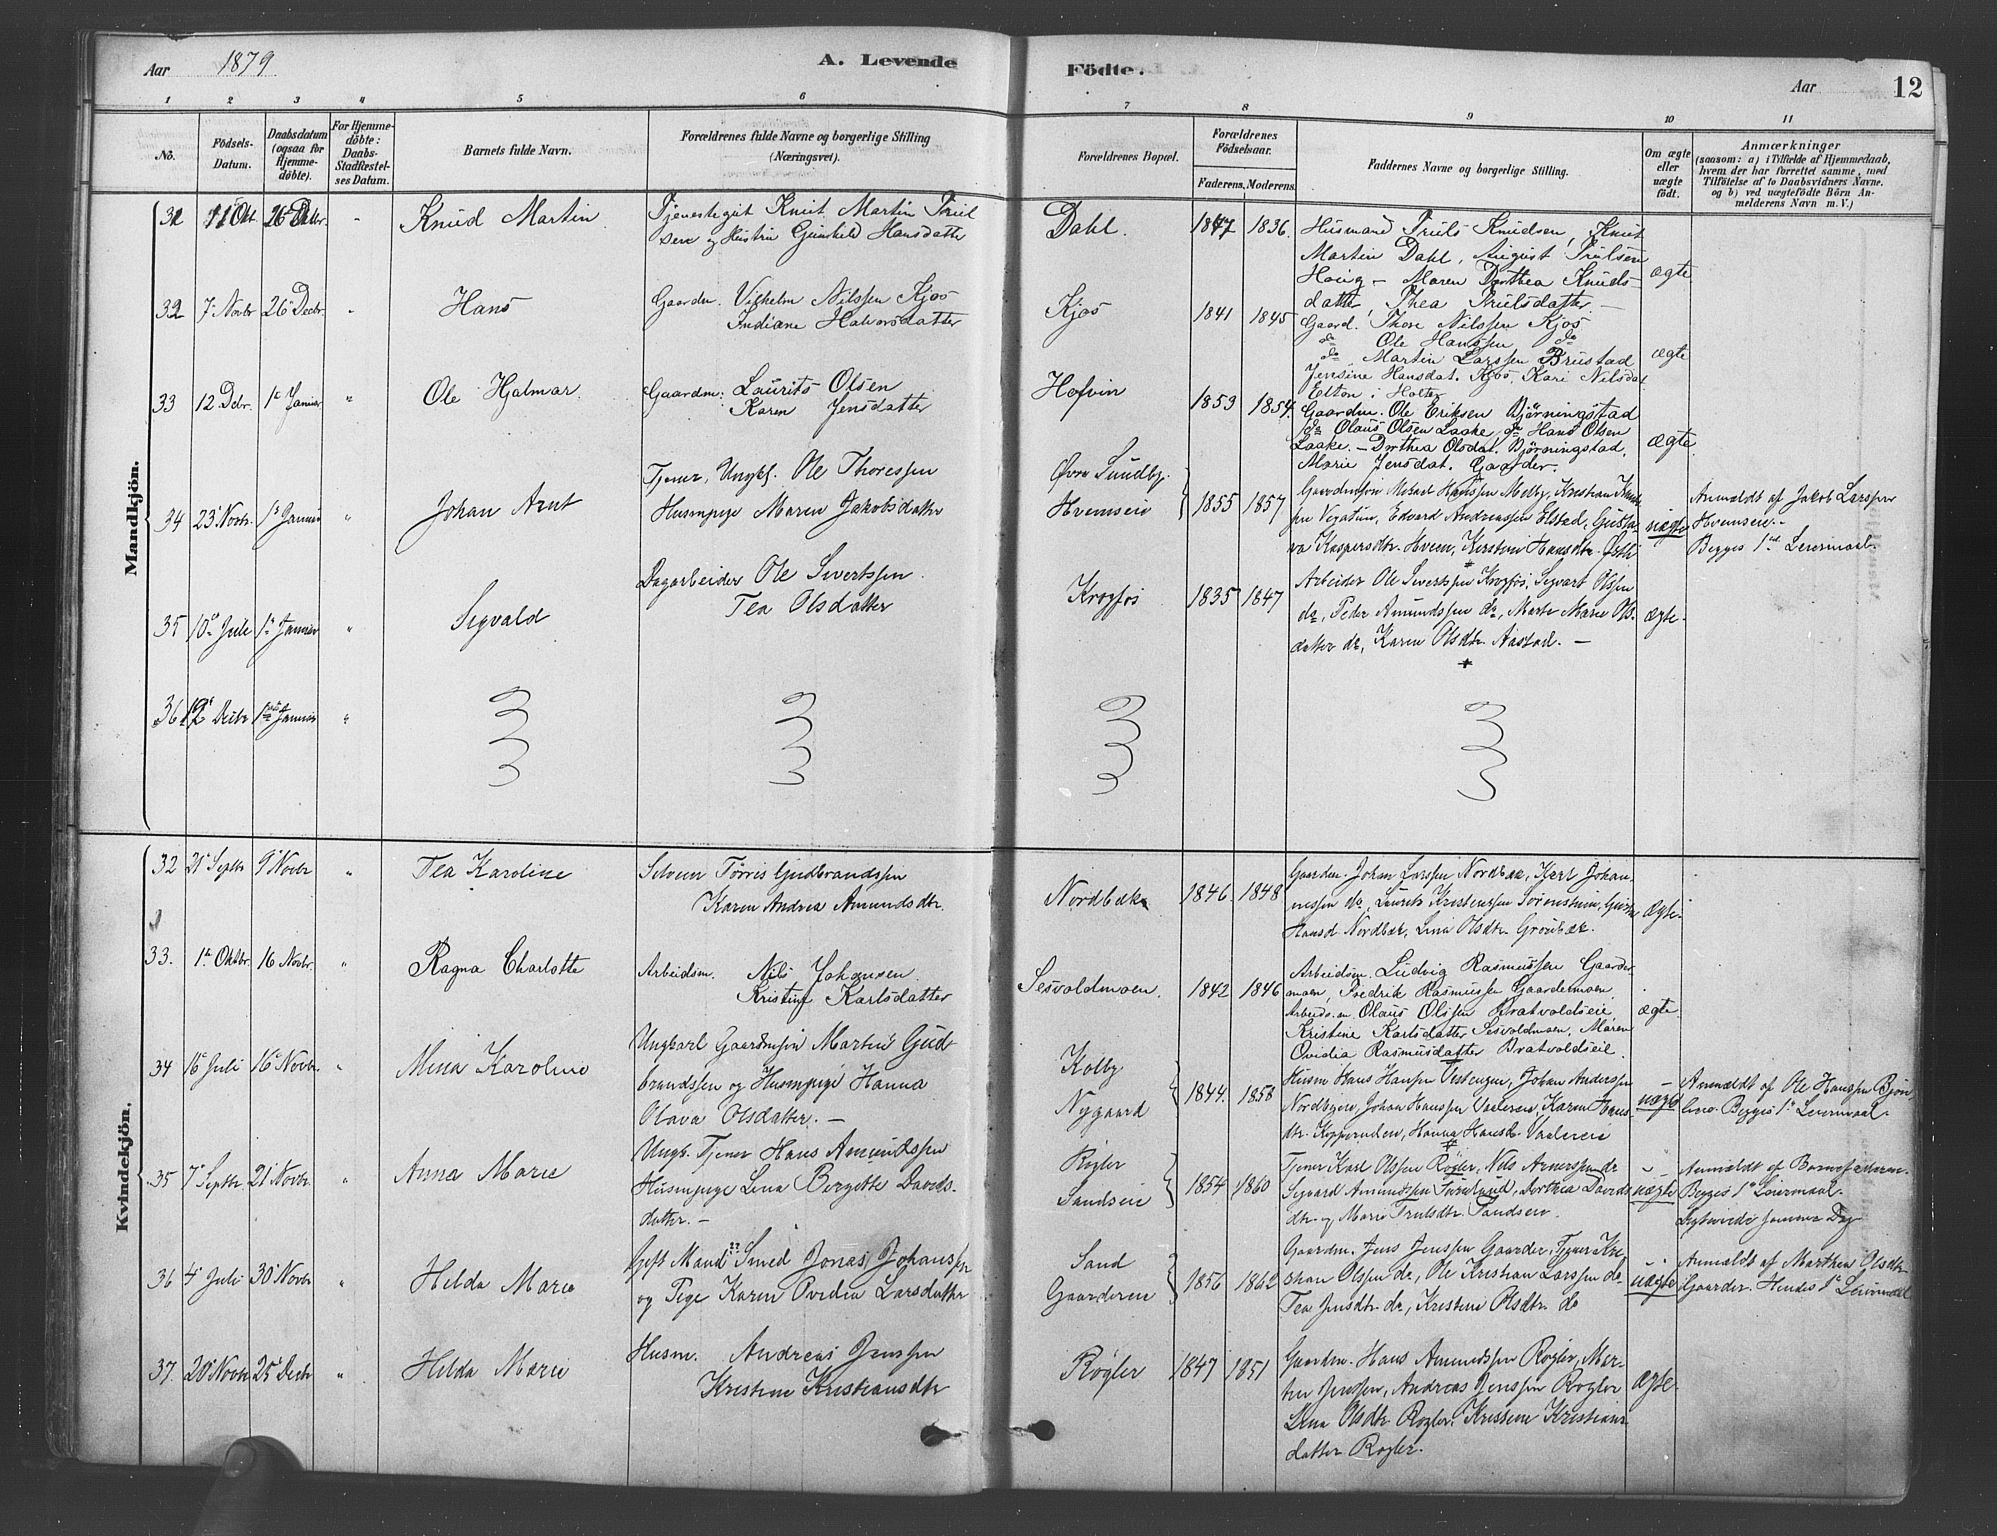 Aar 1879
A. Levende Födte.
Aar 12
1 2 3 4 5 6 7 8 9 10 11
No.
Födsels-Datum.
Daabsdatum (ogsaa for Hjemme-döbte).
For Hjemme-döbte: Daabs-Stadfæstel-ses Datum.
Barnets fulde Navn.
Forældrenes fulde Navne og borgerlige Stilling (Næringsvei).
Forældrenes Bopæl.
Forældrenes Födselsaar.
Faderens. Moderens.
Faddernes Navne og borgerlige Stilling.
Om ægte eller uægte födt.
Anmærkninger
(saasom: a) i Tilfælde af Hjemmedaab, hvem der har forrettet samme, med Tilföielse af to Daabsvidners Navne, og b) ved uægtefödte Börn An-melderens Navn m. V.)
Mandkjön.
31 11 Okt. 26 Decbr. Knud Martin
Tjenestegut Knut Martin Trul
sen og Hustru Gunhild Hansdatter
Dahl. 1847 1836.
Husmand Truls Knudsen, Knut
Martin Dahl, August Trulsen
Houg – Maren Dorthea Knuds-
datter, Thea Trulsdatter –
ægte
32 7 Novbr 26 Decbr. " Hans
Gaardm. Vilhelm Nilssen Kjos
Indiane Halvorsdatter
Kjos 1841 1845
Gaard. Thore Nilssen Kjos
do Ole Hanssen do
do Martin Larssen Brustad
Jensine Hansdat. Kjos, Kari Nilsdat
Elton i Holter
ægte
33 12 Debr. 1 Januar " Ole Hjalmar.
Gaardm: Laurits Olsen
Karen Jensdatter
Hofvin 1853 1854.
Gaardm. Ole Eriksen Bjørningstad
do Olaus Olsen Laake, do Hans Olsen
Laake. – Dorthea Olsdat. Bjørningstad,
Marie Jensdat. Gaarder.
ægte
34 23 Novbr. 1 Januar " Johan Arnt
Tjener, Ungk. Ole Thoressen
Huspige Maren Jakobsdatter
Øvre Sundby.
Hvemseie 1855 1857
Gaardmsøn Mikael Hanssen Melby, Kristian Knud-
sen Vegstun, Edvard Andreassen Elstad, Gusta-
va Kaspersdtr. Hveem, Kersten Hansdtr.
uægte
Anmeldt af Jakob Larssen
Hvemseie.
Begges 1st Leiermaal.
35 10 Juli 1 Januar " Sigvald
Dagarbeider Ole Sivertssen.
Tea Olsdatter
Krogfos 1835 1847
Arbeider Ole Sivertssen Krogfos, Sigvart Olssen
do, Peter Amundssen do, Marte Marie Ols-
datter do, Karen Olsdtr. Aastad. –
ægte.
36 12 Decbr 1 Januar "
Kvindekjön.
32 21 Septbr 9 Novbr " Tea Karoline
Selveier Tørris Gudbrandssen
Karen Andrea Amundsdtr.
Nordbæk 1846 1848
Gaardm. Johan Larssen Nordbæk, Karl Johan-
nessen do, Laurits Kristenssen Sørensteen,
Hansd Nordbæk, Lina Olsdtr. Grønbæk.
ægte
33. 1 Oktbr. 16 Novbr. " Ragna Charlotte
Arbeidsm. Nils Johansen
Kristine Karlsdatter
Sesvoldmoen. 1842 1846
Arbeidsm. Ludvig Rasmussen Gaarder
moen, Fredrik Rasmussen Gaardermoen,
Arbeidsm. Olaus Olssen Bratvoldseie,
Kristine Karlsdatter Sesvoldmoen, Maren
Ovidia Rasmusdatter Bratvoldseie.
ægte
34 16 Juli 16 Novbr. " Mina Karoline
Ungkarl Gaardmsøn Martin Gud-
brandssen og Husmpige Hanna
Olava Olsdatter. –
Kolby
Nygaard 1844 1858
Husm Hans Hansen Vestengen, Johan Anderssen
Nordbyeie, Johan Hanssen Vaalereie, Karen Hans
dtr. Kopperuden, Hanna Hansd. Vaalereie
uægte
Anmældt af Ole Hanssen
Begges 1st Leiermaal.
35 7 Septbr. 21 Novbr. " Anna Marie
Ungk. Tjener Hans Amundssen
Husmpige Lina Bergitte Davids-
datter. –
Røgler
Sandseie 1854 1860
Tjener Karl Olssen Røgler, Nils Arnessen do
Sigvard Amundssen, Dorthea Davids
dtr. og Marie Trulsdtr. Sandseie.
uægte
Anmældt af Barnefaderen.
Begges 1st Leiermaal.
samme Dag
36 4 Juli 30 Novbr " Helda Marie
Gift Mand Smed Jonas Johanssen
og Pige Karen Ovidia Larsdatter
Sand
Gaardereie 1856 1862
Gaardm. Jens Jenssen Gaarder, Tjener Kri-
stian Olssen do, Ole Kristian Larssen do
Tea Jensdtr. do, Kristine Olsdtr. do
uægte
Anmeldt af Marthea Olsdtr
Gaarder. Hendes 1st Leiermaal
37. 20 Novbr 25 Decbr " Helda Marie
Husm. Andreas Jenssen
Kristine Kristiansdtr
Røgler 1847 1851
Gaardm. Hans Amundssen Røgler, Mar-
tin Jenssen, Andreas Jenssen Røgler
Lina Olsdtr. Røgler. Kristine Kristians-
datter Røgler.
ægte